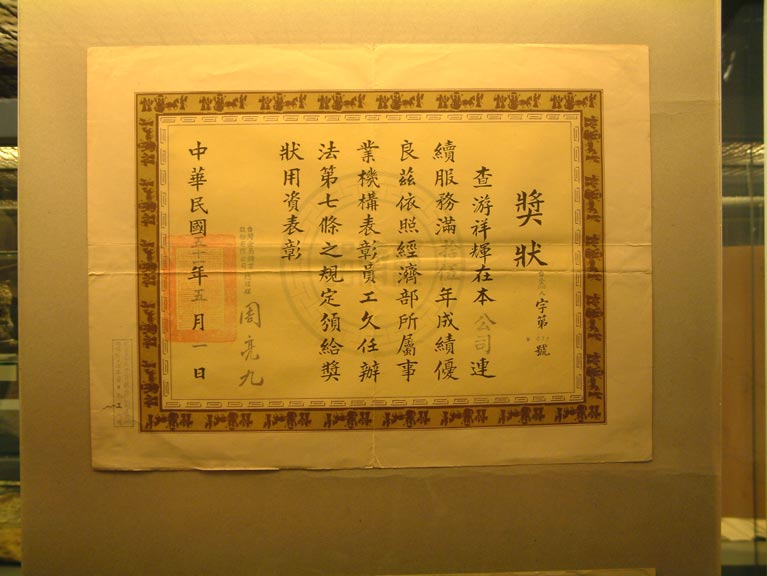 獎狀
人字第 號
查游祥輝在本公司連
續服務滿拾伍年成績優
良茲依照經濟部所屬事
業機構表彰員工久任辦
法第七條之規定頒給獎
狀用資表彰
周亮九
中華民國五十一年五月一日